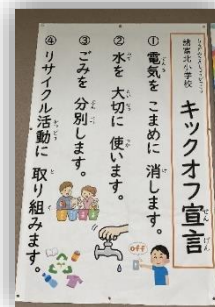 諸富北小学校
キックオフ宣言
せんげん
① 電気を こまめに 消します。
② 水を 大切に 使います。
③ ごみを 分別します。
④ リサイクル活動に 取り組みます。
off